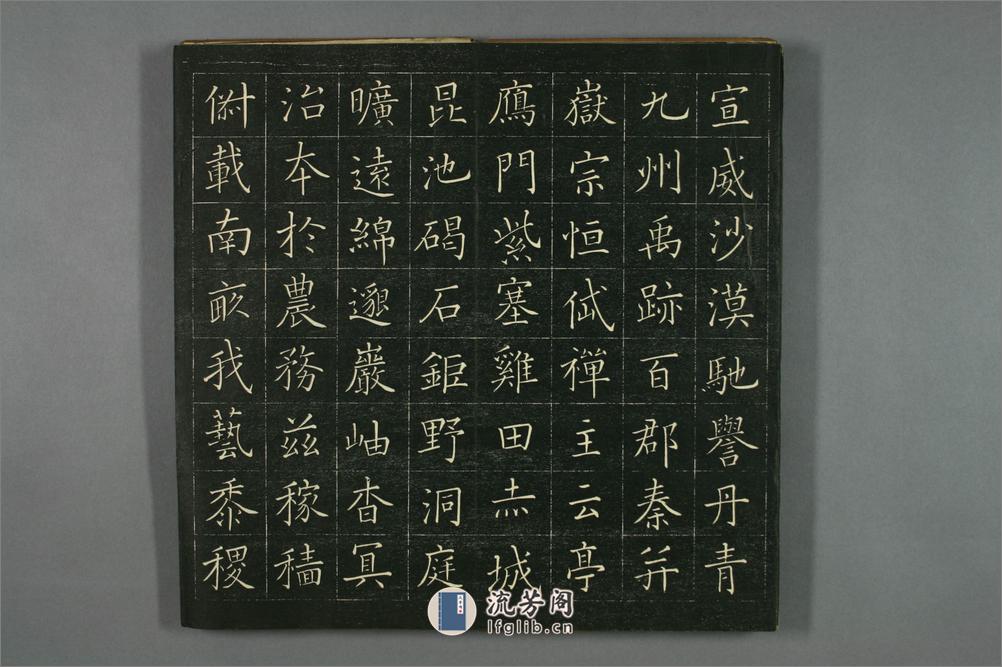 宣威沙漠馳譽丹青
九州禹跡百郡秦并
嶽宗恒岱禪主云亭
鴈門紫塞雞田赤城
昆池碣石鉅野洞庭
曠遠綿邈巖岫杳冥
治本於農務茲稼穡
俶載南畝我藝黍稷
流芳阁
lfglib.cn